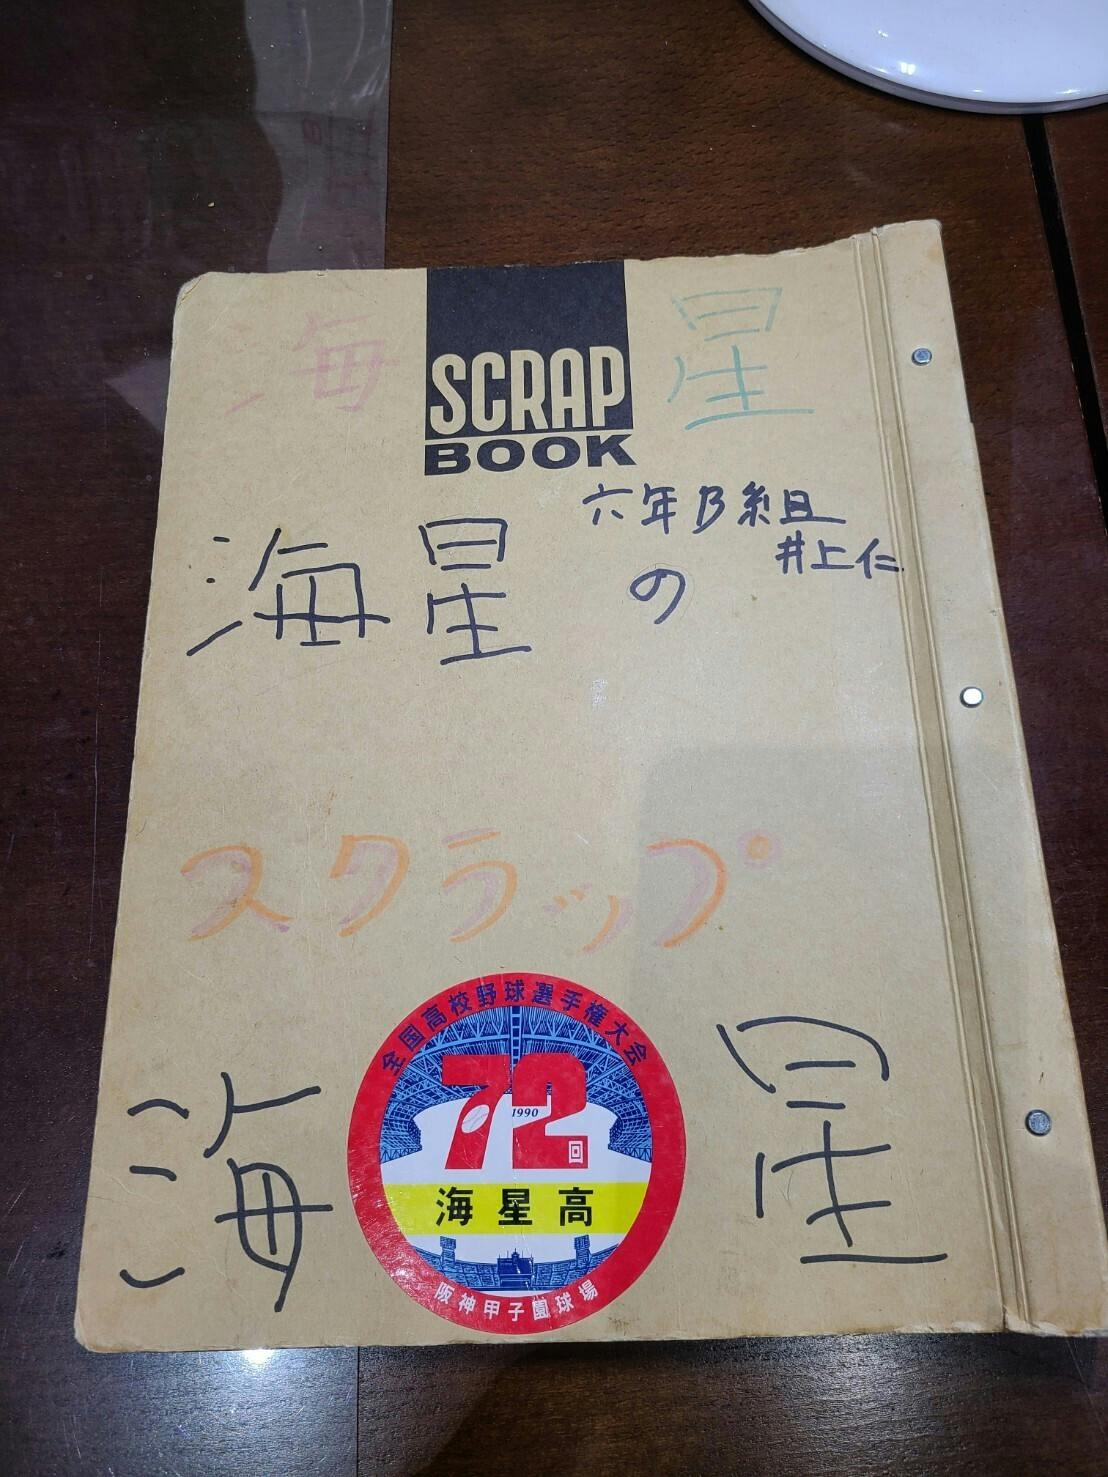 海 星
SCRAP
BOOK
六年B組
井上仁
海星の
スクラップ
海 星
全国高校野球選手権大会
72回
1990
海星高
阪神甲子園球場